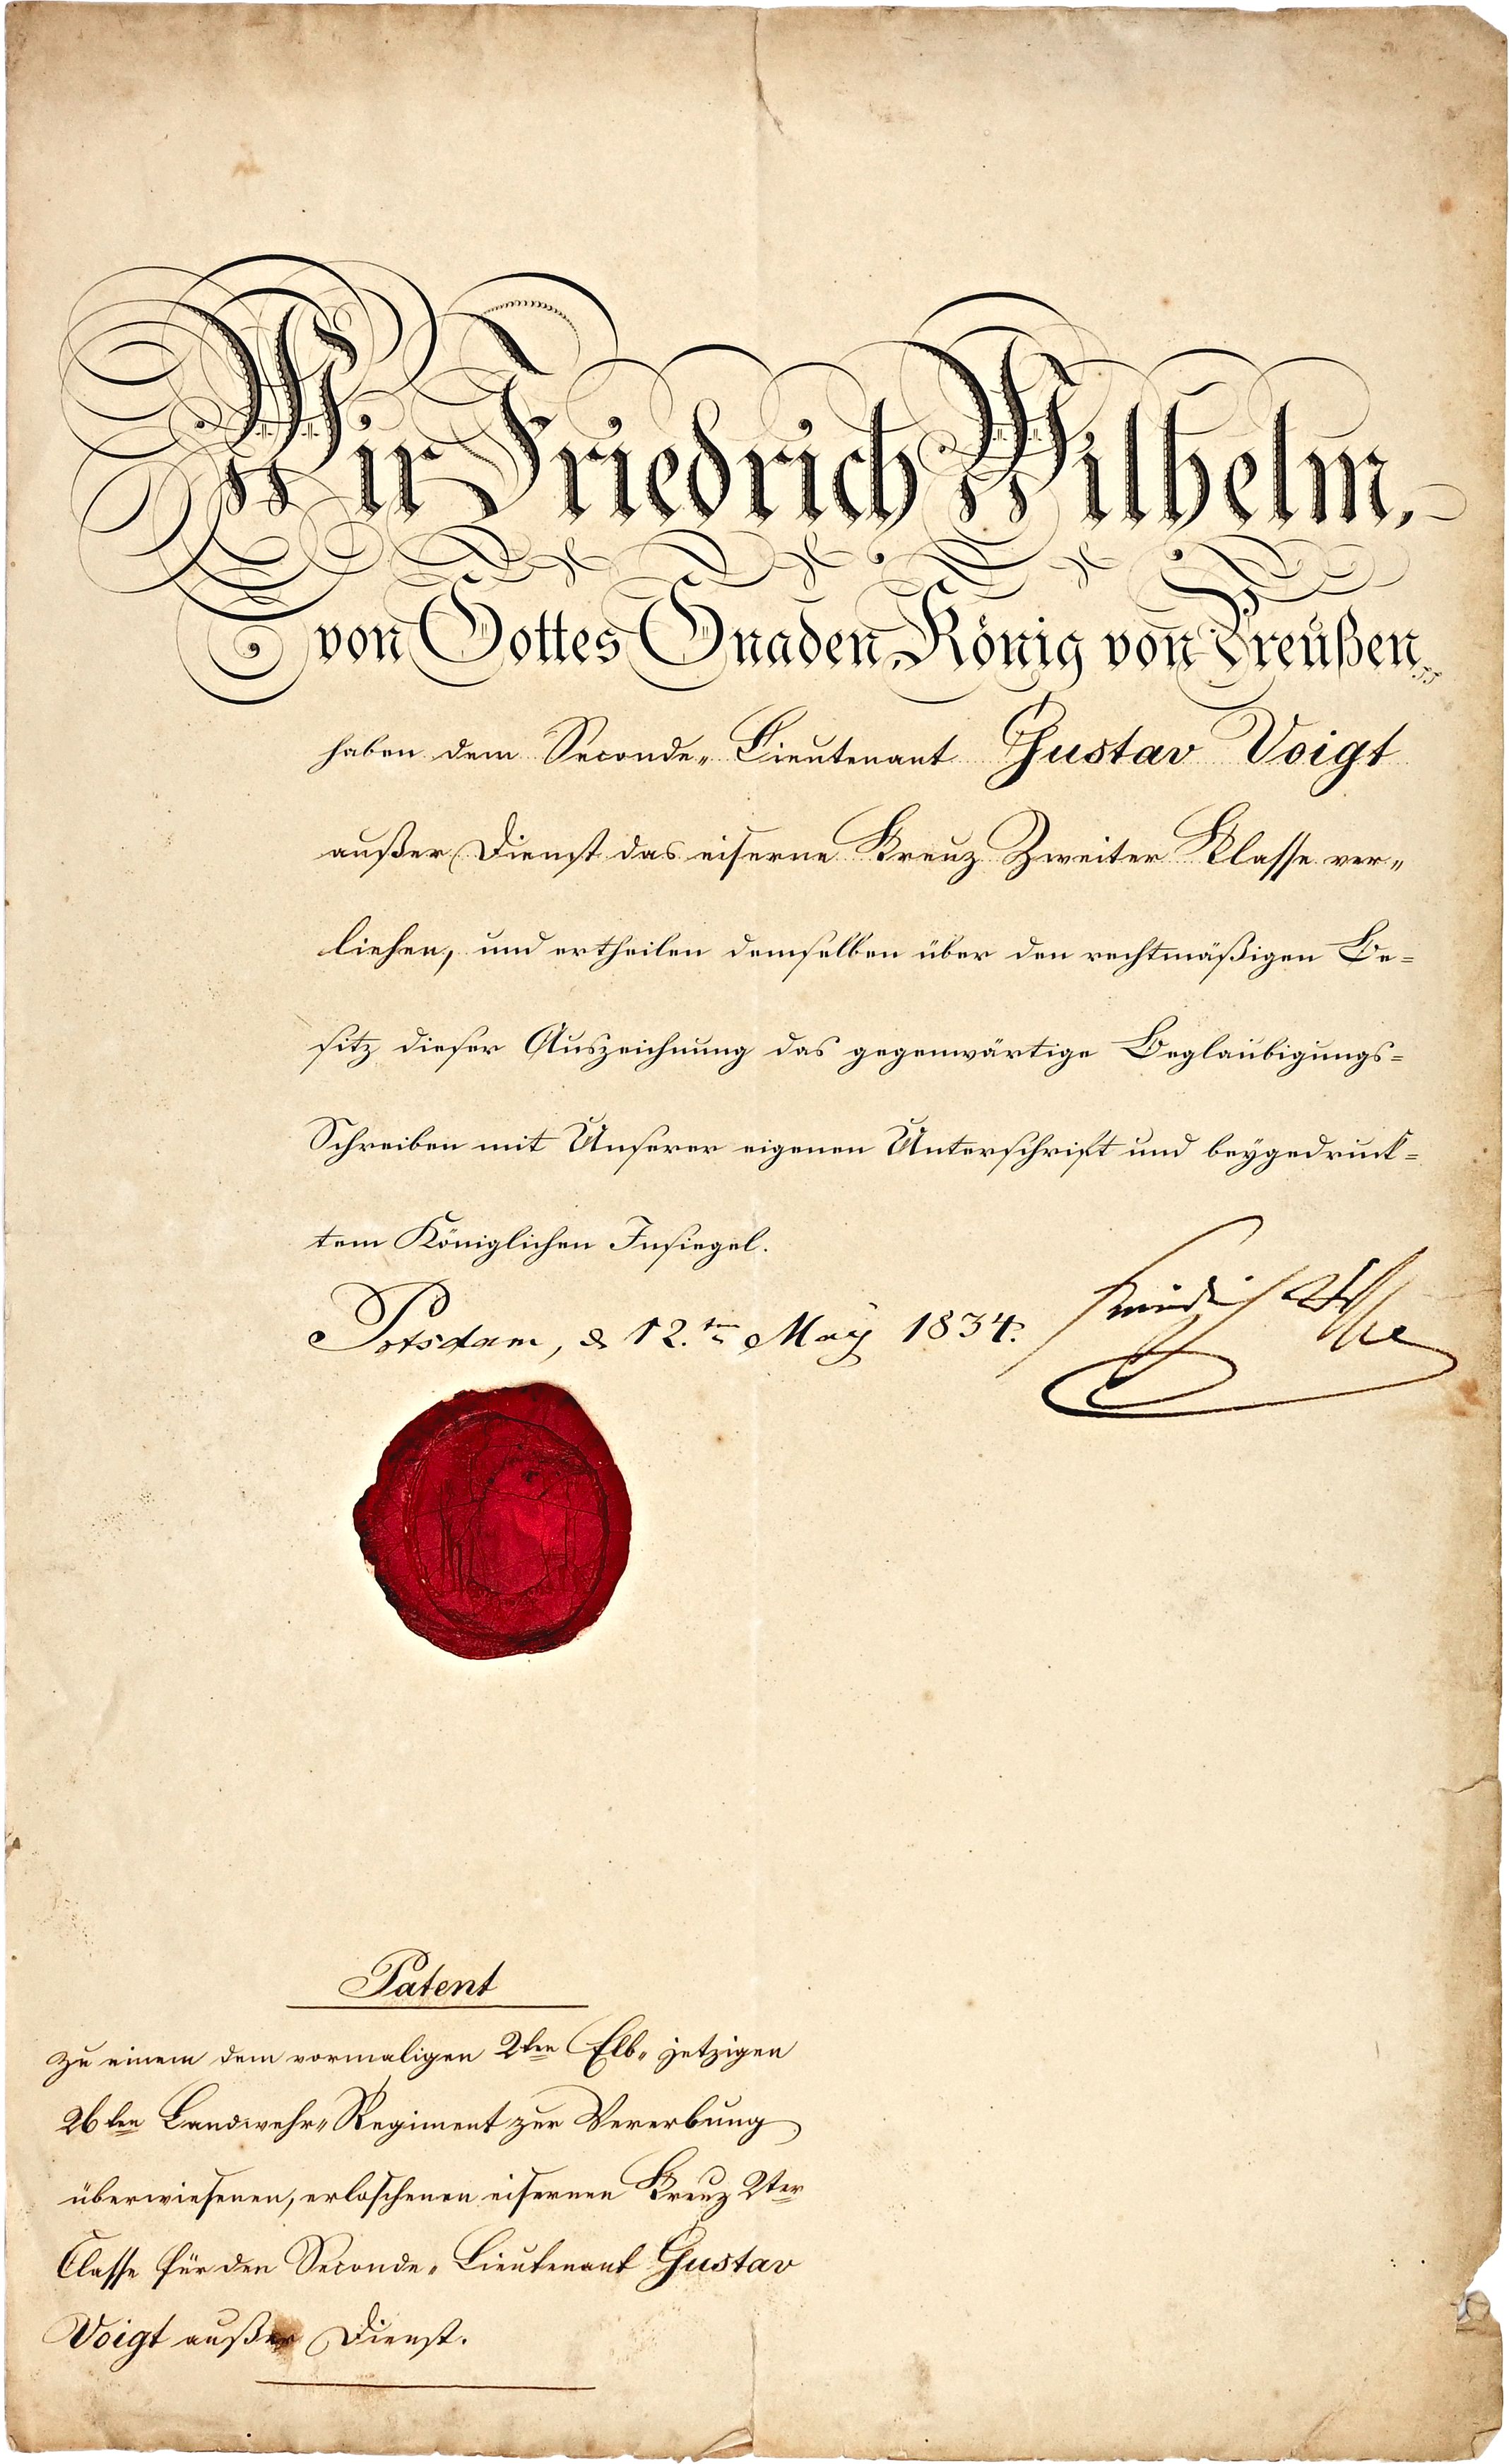 Wir Friedrich Wilhelm,
von Gottes Gnaden König von Preußen
haben dem Seconde-Lieutenant Gustav Voigt
außer Dienst das eiserne Kreuz Zweiter Klasse ver-
liehen, und ertheilen demselben über den rechtmäßigen Be-
sitz dieser Auszeichnung das gegenwärtige Beglaubigungs-
Schreiben mit Unserer eigenen Unterschrift und beygedruck-
tem Königlichen Insiegel.
Potsdam, d 12.ten May 1834.
Friedrich Wilhelm
Patent
zu einem dem vormaligen 2ten Elb- jetzigen
26ten Landwehr-Regiment zur Vererbung
überwiesenen, erloschenen eisernen Kreuz 2ter
Classe für den Seconde-Lieutenant Gustav
Voigt außer Dienst.